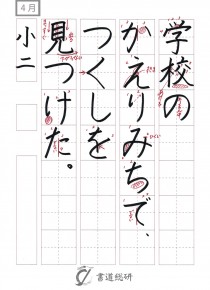 4月
学校の
かえりみちで、
つくしを
見つけた。
小二
書道総研